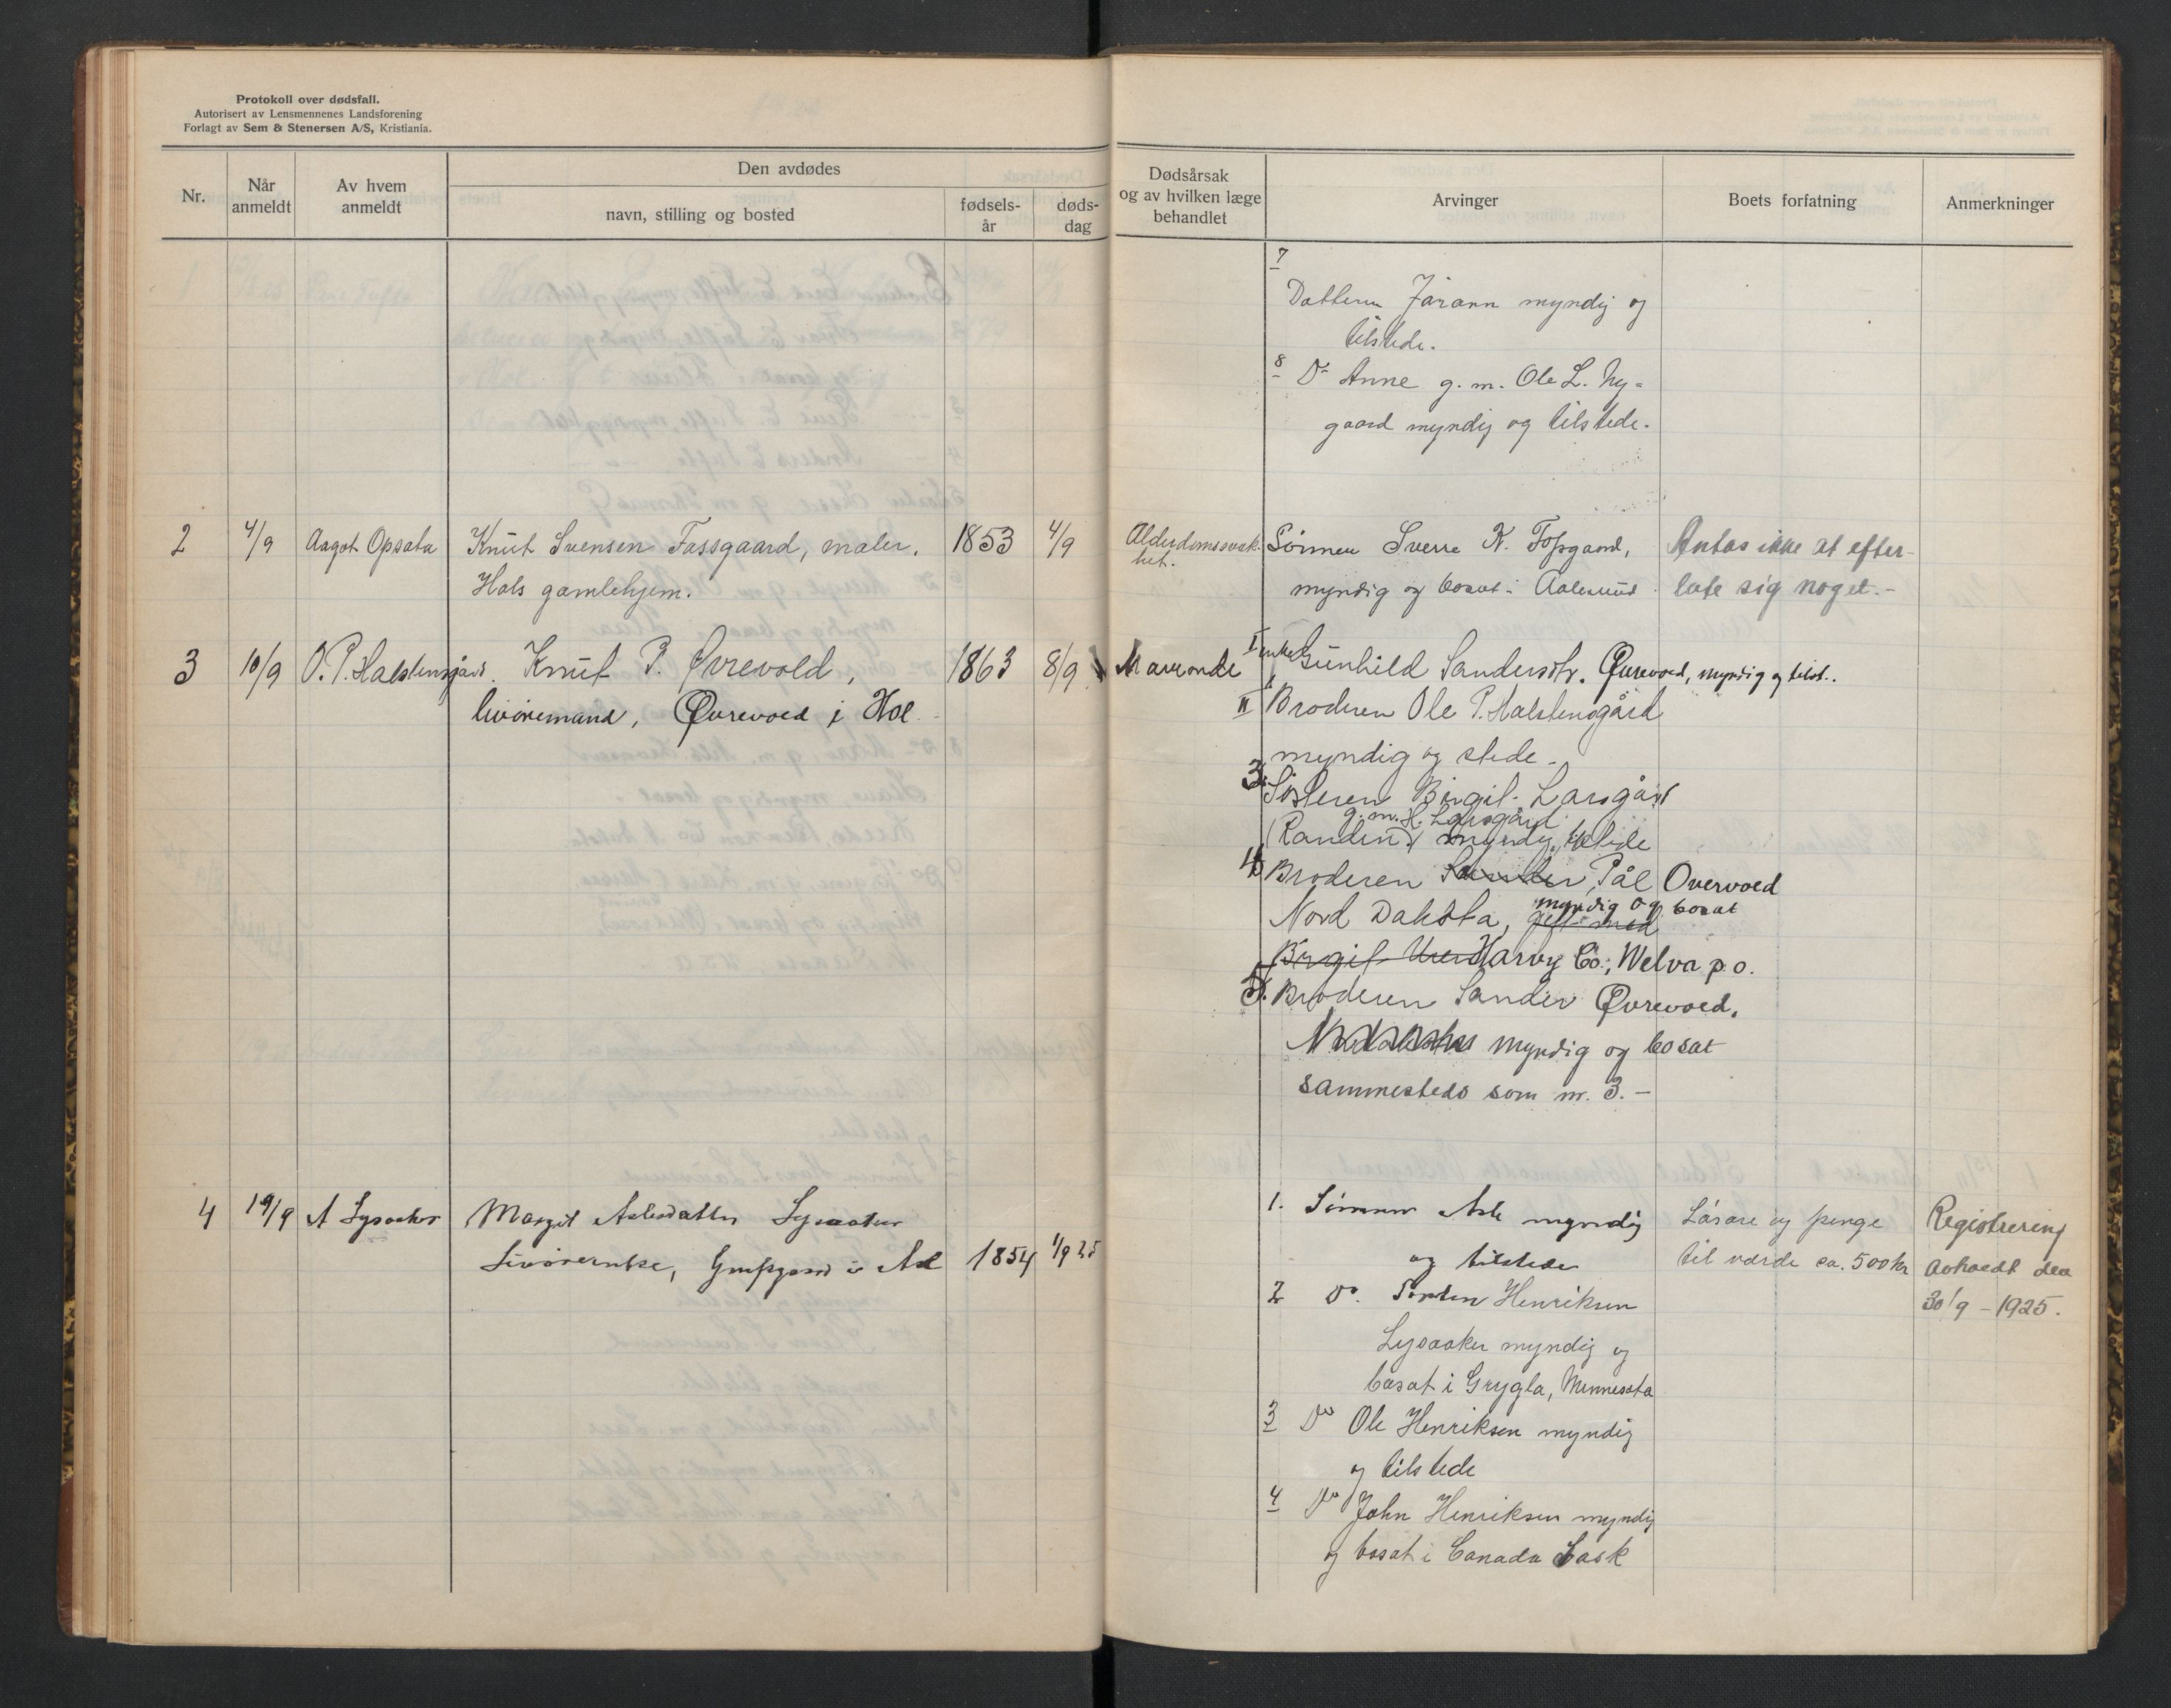 Protokoll over dødsfall.
Autorisert av Lensmennenes Landsforening
Forlagt av Sem & Stenersen A/S, Kristiania.
Nr.
Når anmeldt
Av hvem anmeldt
Den avdødes
navn, stilling og bosted
fødsels-år
døds-dag
Dødsårsak
og av hvilken læge
behandlet
Arvinger
Boets forfatning
Anmerkninger
7
Datteren Jårann myndig og
tilstede.
8 Do Anne g. m. Ole L. Ny-
gaard myndig og tilstede.
2 4/9 Aagot Opsata Knut Svensen Fossgaard, maler. 1853 4/9 Alderdomssvak- Sönnen Sverre K. Fossgaard, Antas ikke at efter-
Hols gamlehjem. het. myndig og bosat i Aalesund. late sig noget.-
3 10/9 O. P. Halstensgård. Knut P. Øvrevold, 1863 8/9 Mavonde I enke Gunhild Sandersdtr. Øvrevold, myndig og tilst..
livöremand, Øvrevold i Hol. II Broderen Ole P. Halstensgård
myndig og stede.
3. Søsteren Birgit Larsgård
g. m. H. Larsgård
(Randin) myndig, tilstede
4 Broderen Sander, Pål Overvold
Nord Dakota, gift med myndig og bosat
Birgit Harvy Co.; Welva p.o.
5. Broderen Sander Øvrevold,
myndig og bosat
sammesteds som nr. 3. -
4 19/9 A Lysaker Margit Aslesdatter Lysaaker 1. Sönnen Asle myndig Lösöre og penge Registrering
Livörenke, Gulsgard i Aal 1854 1/9 25 og tilstede til værde ca. 500 kr avholdt den
2 Do. Torsten Henriksen 30/9 - 1925.
Lysaaker myndig og
bosat i Grygla, Minnesota
3 Do Ole Henriksen myndig
og tilstede
4 Do John Henriksen myndig
og bosat i Canada Sask